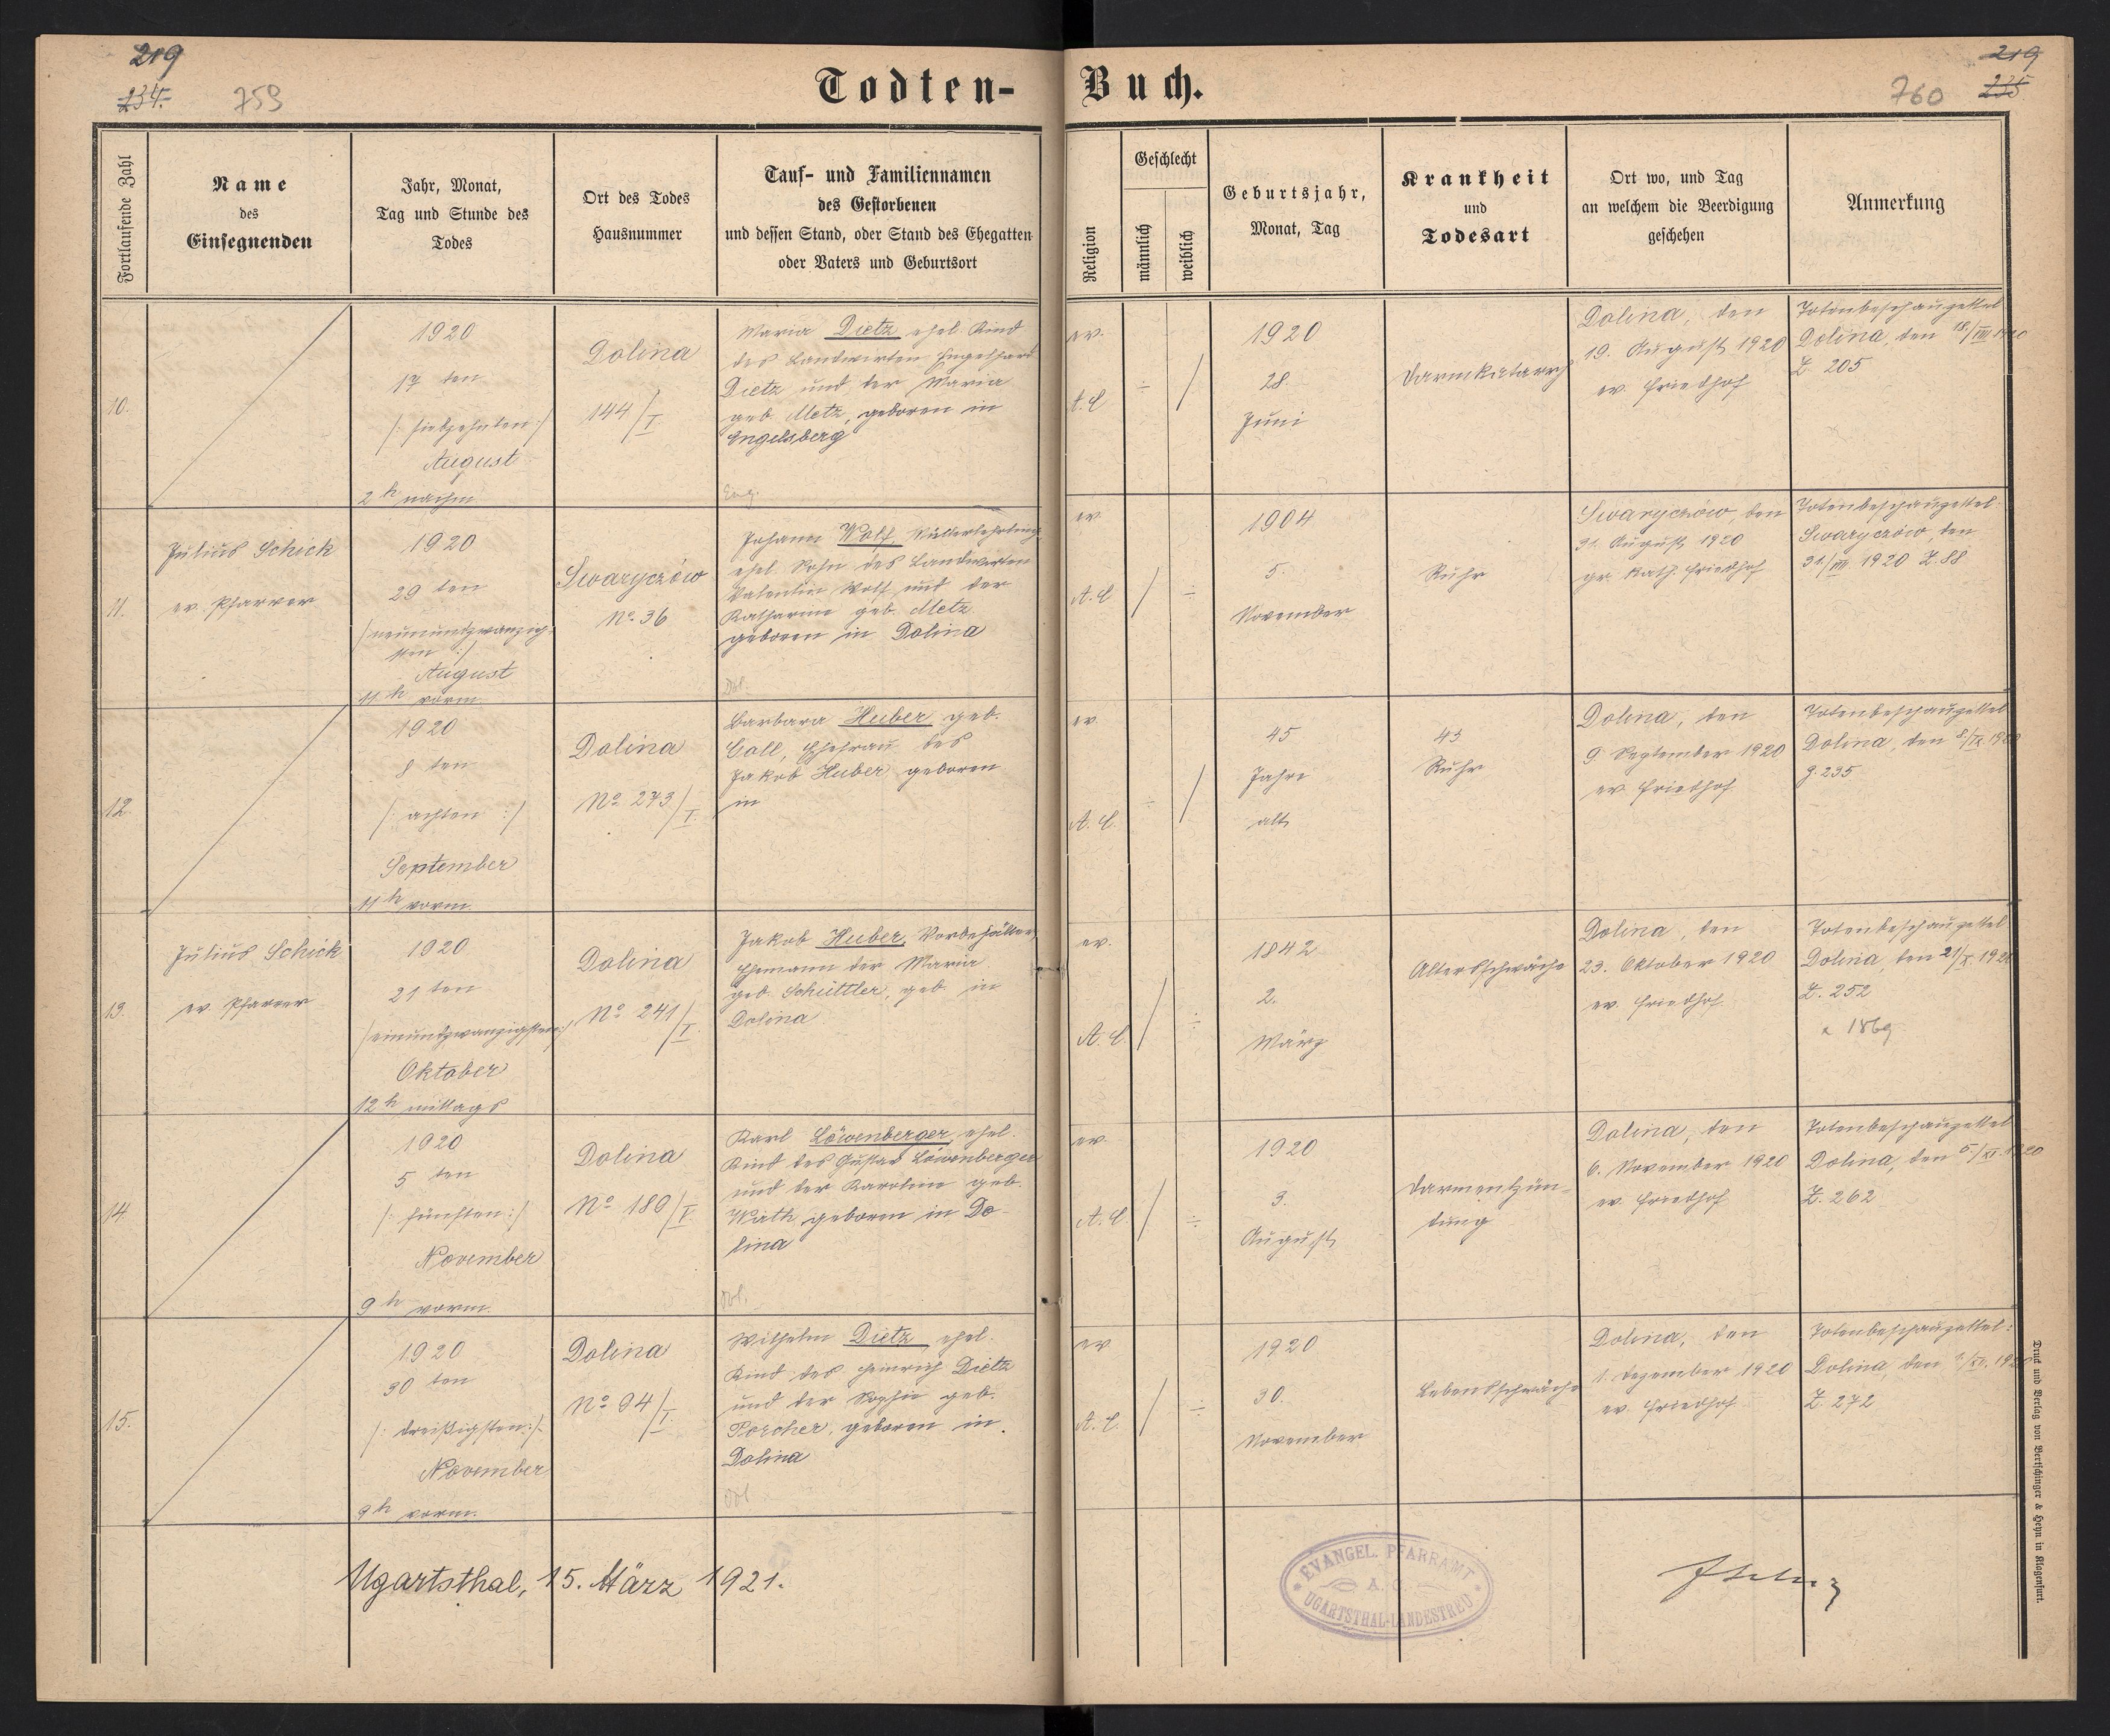 219
234.
759
Todten-
Buch.
760
219
235
Fortlaufende Zahl
Name
des
Einsegnenden
Jahr, Monat,
Tag und Stunde des
Todes
Ort des Todes
Hausnummer
Tauf- und Familiennamen
des Gestorbenen
und dessen Stand, oder Stand des Ehegatten
oder Vaters und Geburtsort
Religion
Geschlecht
männlich
weiblich
Geburtsjahr,
Monat, Tag
Krankheit
und
Todesart
Ort wo, und Tag
an welchem die Beerdigung
geschehen
Anmerkung
10.
1920
17 ten
/: siebzehnten :/
August
2 h nachm
Dolina
144/I.
Maria Dietz ehel. Kind
des Landwirten Engelhard
Dietz und der Maria
geb. Metz, geboren in
Engelsberg
Eng.
ev.
A. C
÷
/
1920
28.
Juni
Darmkatarrh
Dolina, den
19. August 1920
ev. Friedhof
Totenbeschauzettel
Dolina, den 18./VIII 1920
Z. 205
11.
Julius Schick
ev. Pfarrer
1920
29 ten
/: neunundzwanzig-
sten :/
August
11 h vorm.
Swaryczów
No. 36
Johann Wolf, Müllerlehrling
ehel. Sohn des Landwirten
Valentin Wolf und der
Katharina geb. Metz
geboren in Dolina
Dol.
ev.
A. C
/
÷
1904
5.
November
Ruhr
Swaryczów, den
31. August 1920
gr. kath. Friedhof
Totenbeschauzettel:
Swaryczów, den
31./VIII 1920 Z. 88
12.
1920
8 ten
/: achten :/
September
11 h vorm.
Dolina
No. 273/I.
Barbara Huber geb.
Call, Ehefrau des
Jakob Huber geboren
in
ev.
A. C.
÷
/
45
Jahre
alt
45
Ruhr
Dolina, den
9. September 1920
ev. Friedhof
Totenbeschauzettel
Dolina, den 8./IX 1920
Z. 235
13.
Julius Schick
ev. Pfarrer
1920
21 ten
/: einundzwanzigsten :/
Oktober
12 h mittags
Dolina
No. 241/I.
Jakob Huber, Vorbehälter,
Ehemann der Maria
geb. Schüttler, geb. in
Dolina
ev.
A. C.
/
÷
1842
2.
März
Altersschwäche
Dolina, den
23. Oktober 1920
ev. Friedhof
Totenbeschauzettel
Dolina, den 21/X. 1920
Z. 252
x 1869
14.
1920
5 ten
/: fünften :/
November
9 h vorm.
Dolina
No. 180/I.
Karl Löwenberger, ehel.
Kind des Gustav Löwenberger
und der Karolina geb.
Wirth, geboren in Do-
lina
Dol.
ev.
A. C.
/
÷
1920
3.
August
Darmentzün-
dung
Dolina, den
6. November 1920
ev. Friedhof
Totenbeschauzettel
Dolina, den 5./XI. 1920
Z. 262
15.
1920
30 ten
/: dreißigsten :/
November
9 h vorm.
Dolina
No. 94/I.
Wilhelm Dietz ehel.
Kind des Heinrich Dietz
und der Sophie geb.
Porcher, geboren in
Dolina
Dol
ev
A. C.
/
÷
1920
30.
November
Lebensschwäche
Dolina, den
1. Dezember 1920
ev. Friedhof
Totenbeschauzettel:
Dolina, den 1./XII. 1920
Z. 272
Ugartsthal, 15. März 1921.
EVANGEL. PFARRAMT
A. C.
UGARTSTHAL-LANDESTREU
Druck und Verlag von Bertschinger & Heyn in Klagenfurt.